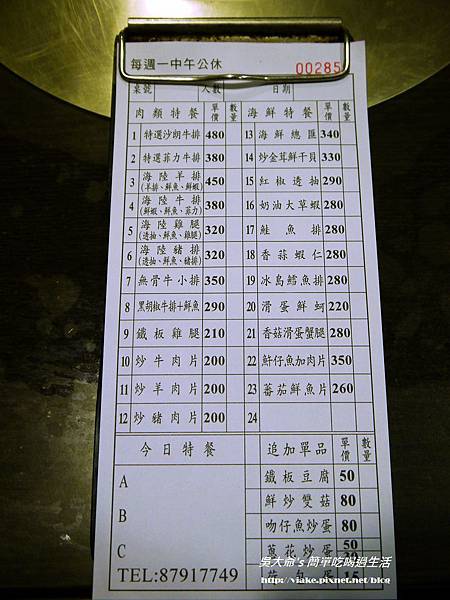 每週一中午公休
00285
桌號 人數 日期
肉類特餐 單價 數量 海鮮特餐 單價 數量
1 特選沙朗牛排 480 13 海鮮總匯 340
2 特選菲力牛排 380 14 炒金茸鮮干貝 330
3 海陸羊排 (羊排、鮮魚、鮮蝦) 450 15 紅椒透抽 290
4 海陸牛排 (鮮蝦、鮮魚、菲力) 380 16 奶油大草蝦 280
5 海陸雞腿 (透抽、鮮魚、雞腿) 320 17 鮭魚排 280
6 海陸豬排 (透抽、鮮魚、豬排) 320 18 香蒜蝦仁 280
7 無骨牛小排 350 19 冰島鱈魚排 280
8 黑胡椒牛排+鮮魚 290 20 滑蛋鮮蚵 220
9 鐵板雞腿 210 21 香菇滑蛋蟹腿 280
10 炒牛肉片 200 22 魽仔魚加肉片 350
11 炒羊肉片 200 23 蕃茄鮮魚片 260
12 炒豬肉片 200 24
今日特餐 追加單品 單價 數量
A
B
C
鐵板豆腐 50
鮮炒雙菇 80
吻仔魚炒蛋 80
蔥花炒蛋 50
蛋 15
TEL:87917749
吳大爺's 簡單吃喝過生活
http://viake.pixnet.net/blog